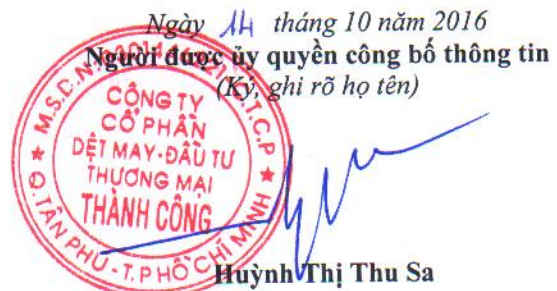 Ngày 14 tháng 10 năm 2016
Người được ủy quyền công bố thông tin
(Ký, ghi rõ họ tên)
CÔNG TY
CỔ PHẦN
DỆT MAY-ĐẦU TƯ
THƯƠNG MẠI
THÀNH CÔNG
Q.TÂN PHÚ - T.P HỒ CHÍ MINH
Huỳnh Thị Thu Sa